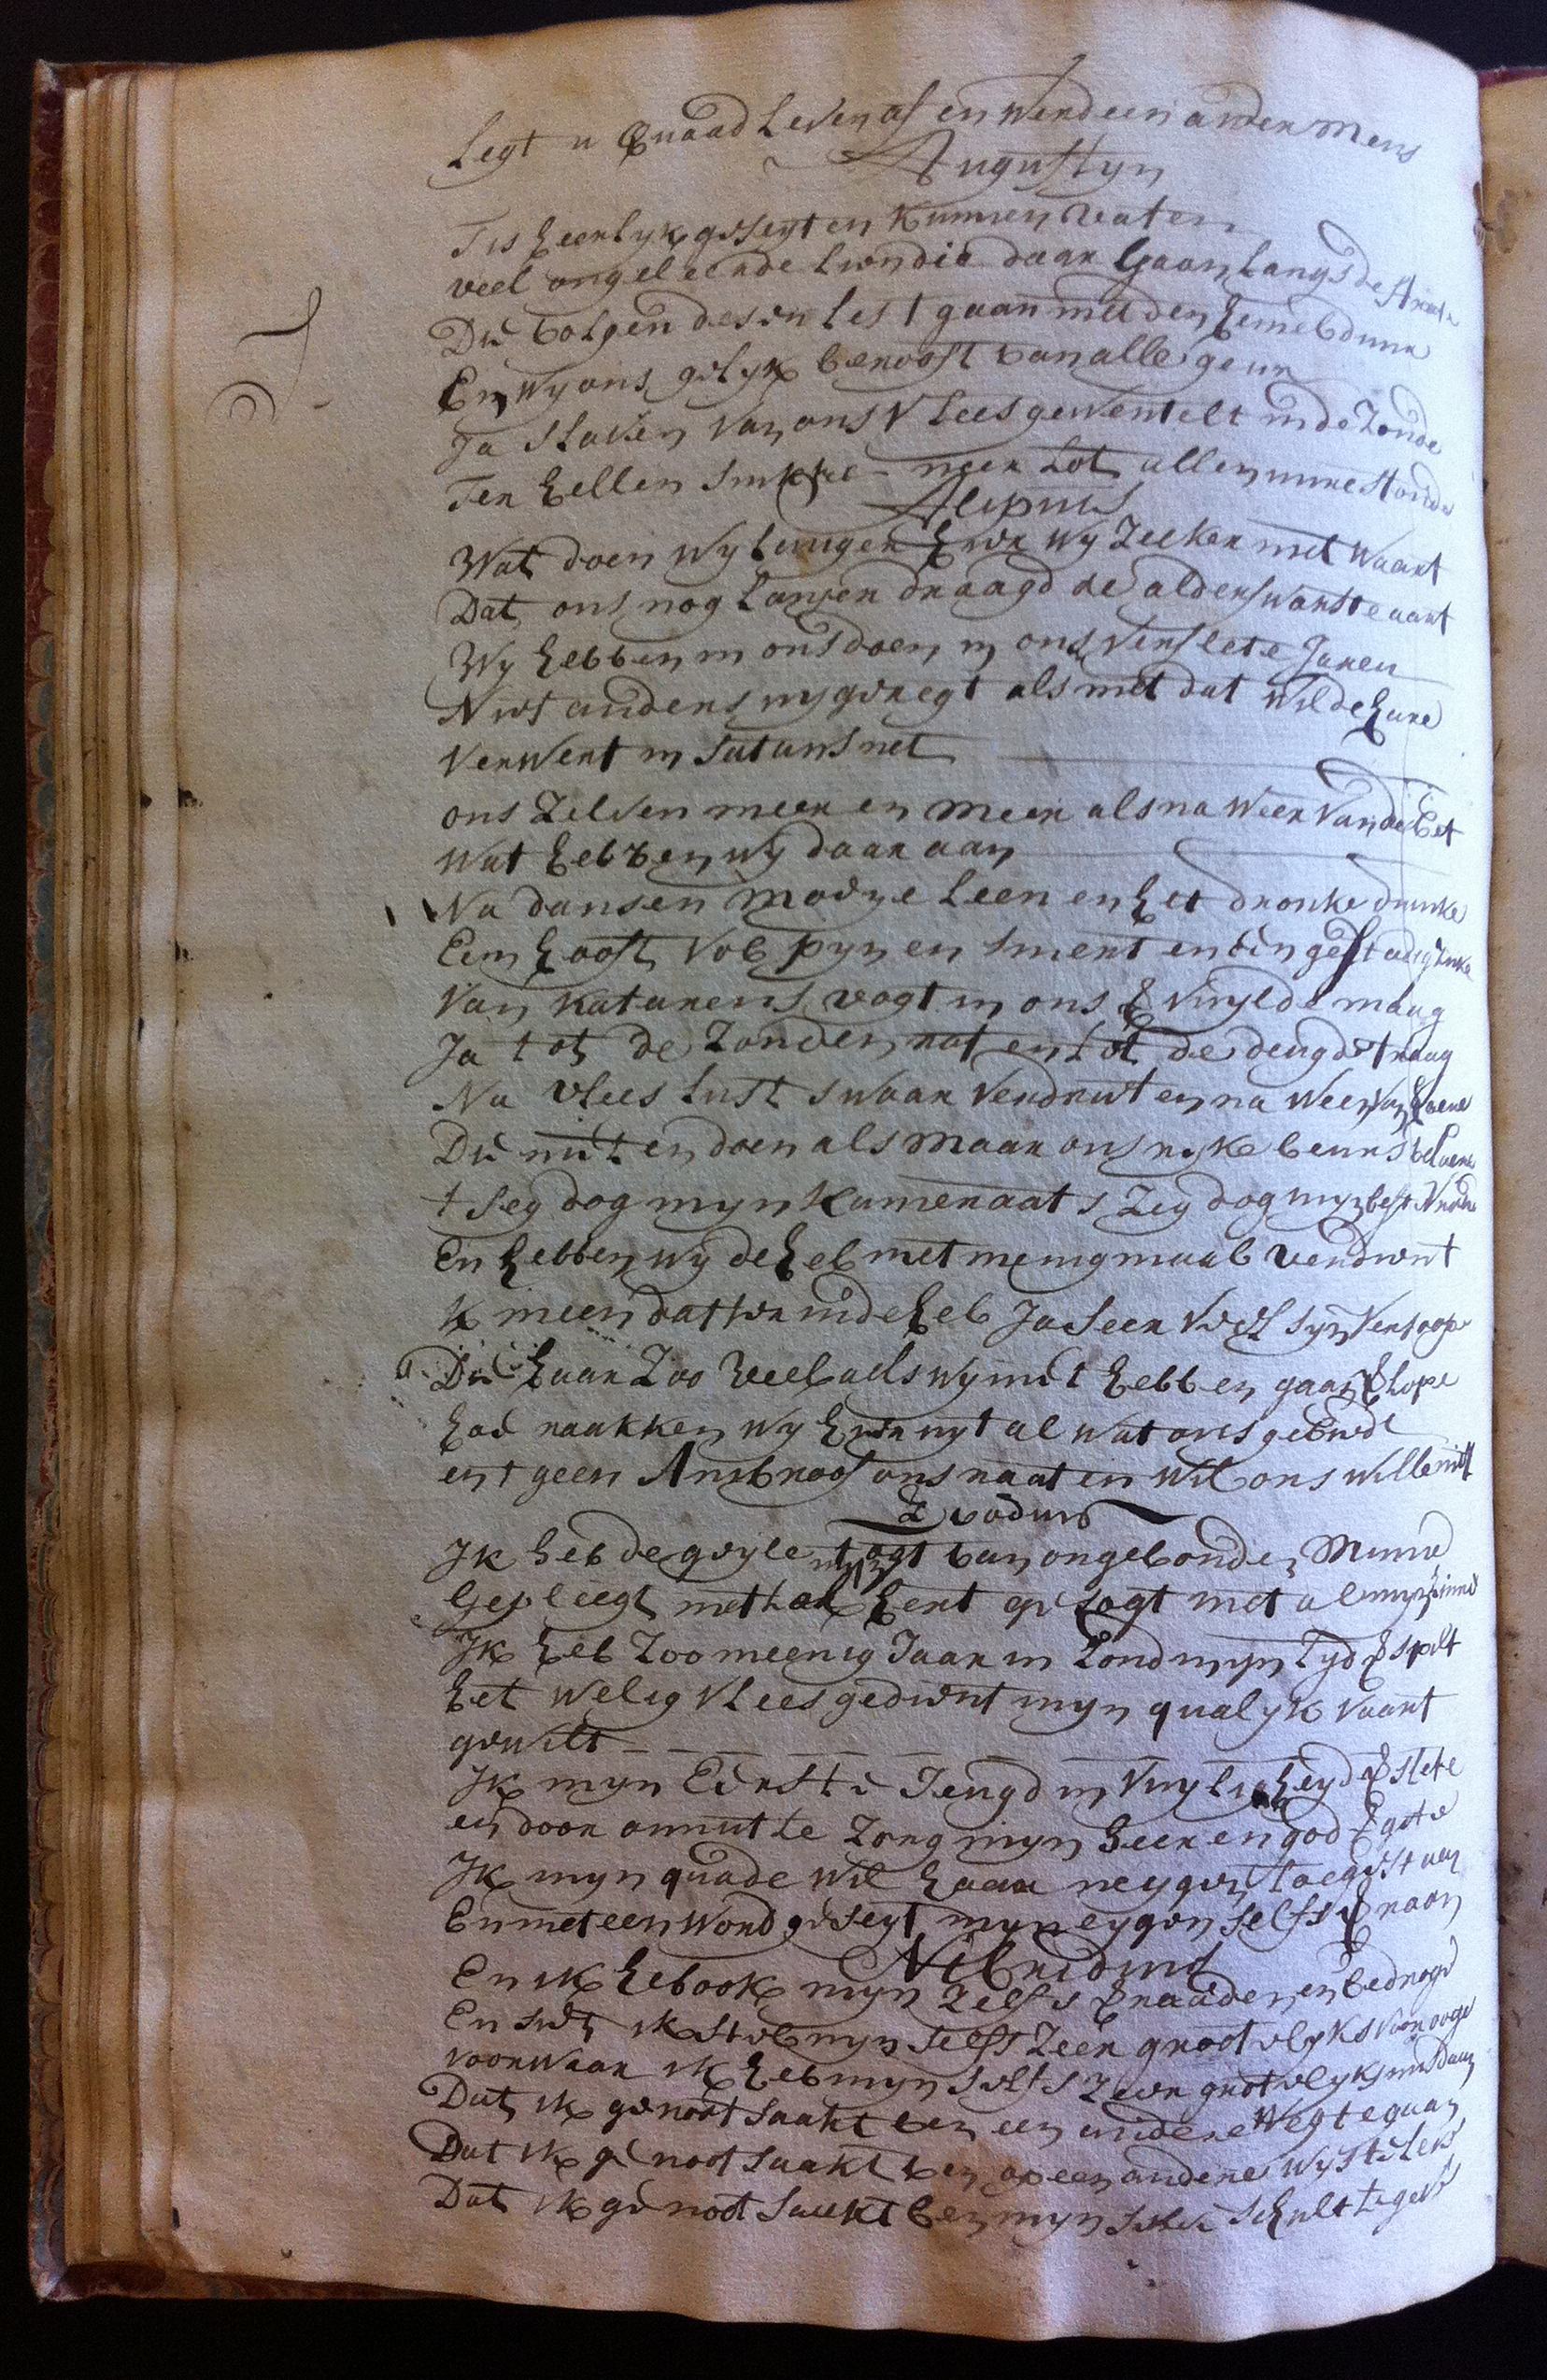 Legt u quaad Leven af en werd een ander Mens
Augustyn
Tis heerlyk geseyt en kunnen vaten
veel ongeleerde Lien die daar Gaan Langs de strate
Die volgen desen les t gaan met den hemel duur
En wy ons gelyk berooft van alle geur
Ja slaven van ons Vlees gewentelt in de Zonde
Ter hellen sinke neer tot allen uure stonde
Alipius
Wat doen wy langer hier wy Zeeker met waart
Dat ons nog langer draagd de alderswarste aart
Wy hebben in ons doen in ons versleten Jaren
Niet anders uytgeregt als met dat wilde hare
Verwert in satans net
ons Zelven meer en meer als na weer van de Bet
Wat hebben wy daar aan
Na dansen moeye leen en het dronke drinke
Een hooft vol pyn en smert en een gestadig sinke
Van katarens vogt in ons vuylde maag
Ja tot de Zonden rat en tot de deugde traag
Na vlees lust swaar verdriet en na weer van hoere
Die niet en doen als maar ons ryke beurs beloere
t seg dog myn kameraats Zeg dog myn best Vriende
En hebben wy de hel met menigmaal verdient
k meen datter in de hel Ja seer veel syn versoope
Die haar Zoo veel als wy niet hebben gaan Elope
hoe raakken wy hier uyt al wat ons gebied
en t geen Ambroos ons raat en wil ons wille niet
Evodius
Ik heb de geyle togt van ongebonden Minne
Gepleegt met hert gesogt met al myn sinne
Ik heb Zoo meenig Jaar in Zond myn Tyd Espilt
het welig Vlees gedient myn qualyk vaart
gewilt
Ik myn Eerste Jeugd in vuyligheyd Eslete
en door onnutte Zorg myn heer en god Egete
Ik myn quade wil haar neygen toegestaan
En met een word geseyt myn eygen selfs Eraan
Nebridius
En ik heb ook myn Zelfs Eraaden en bedroge
En siet ik stel myn selfs Zeer grootelyks voor ooge
voorwaar ik heb myn selfs Zeer grotelyks misdaan
Dat ik genoot saakt ben een andere Weg te gaan
Dat ik genootsaakt ben op een andere wys te leve
Dat ik genootsaekt ben myn selve schult te geve